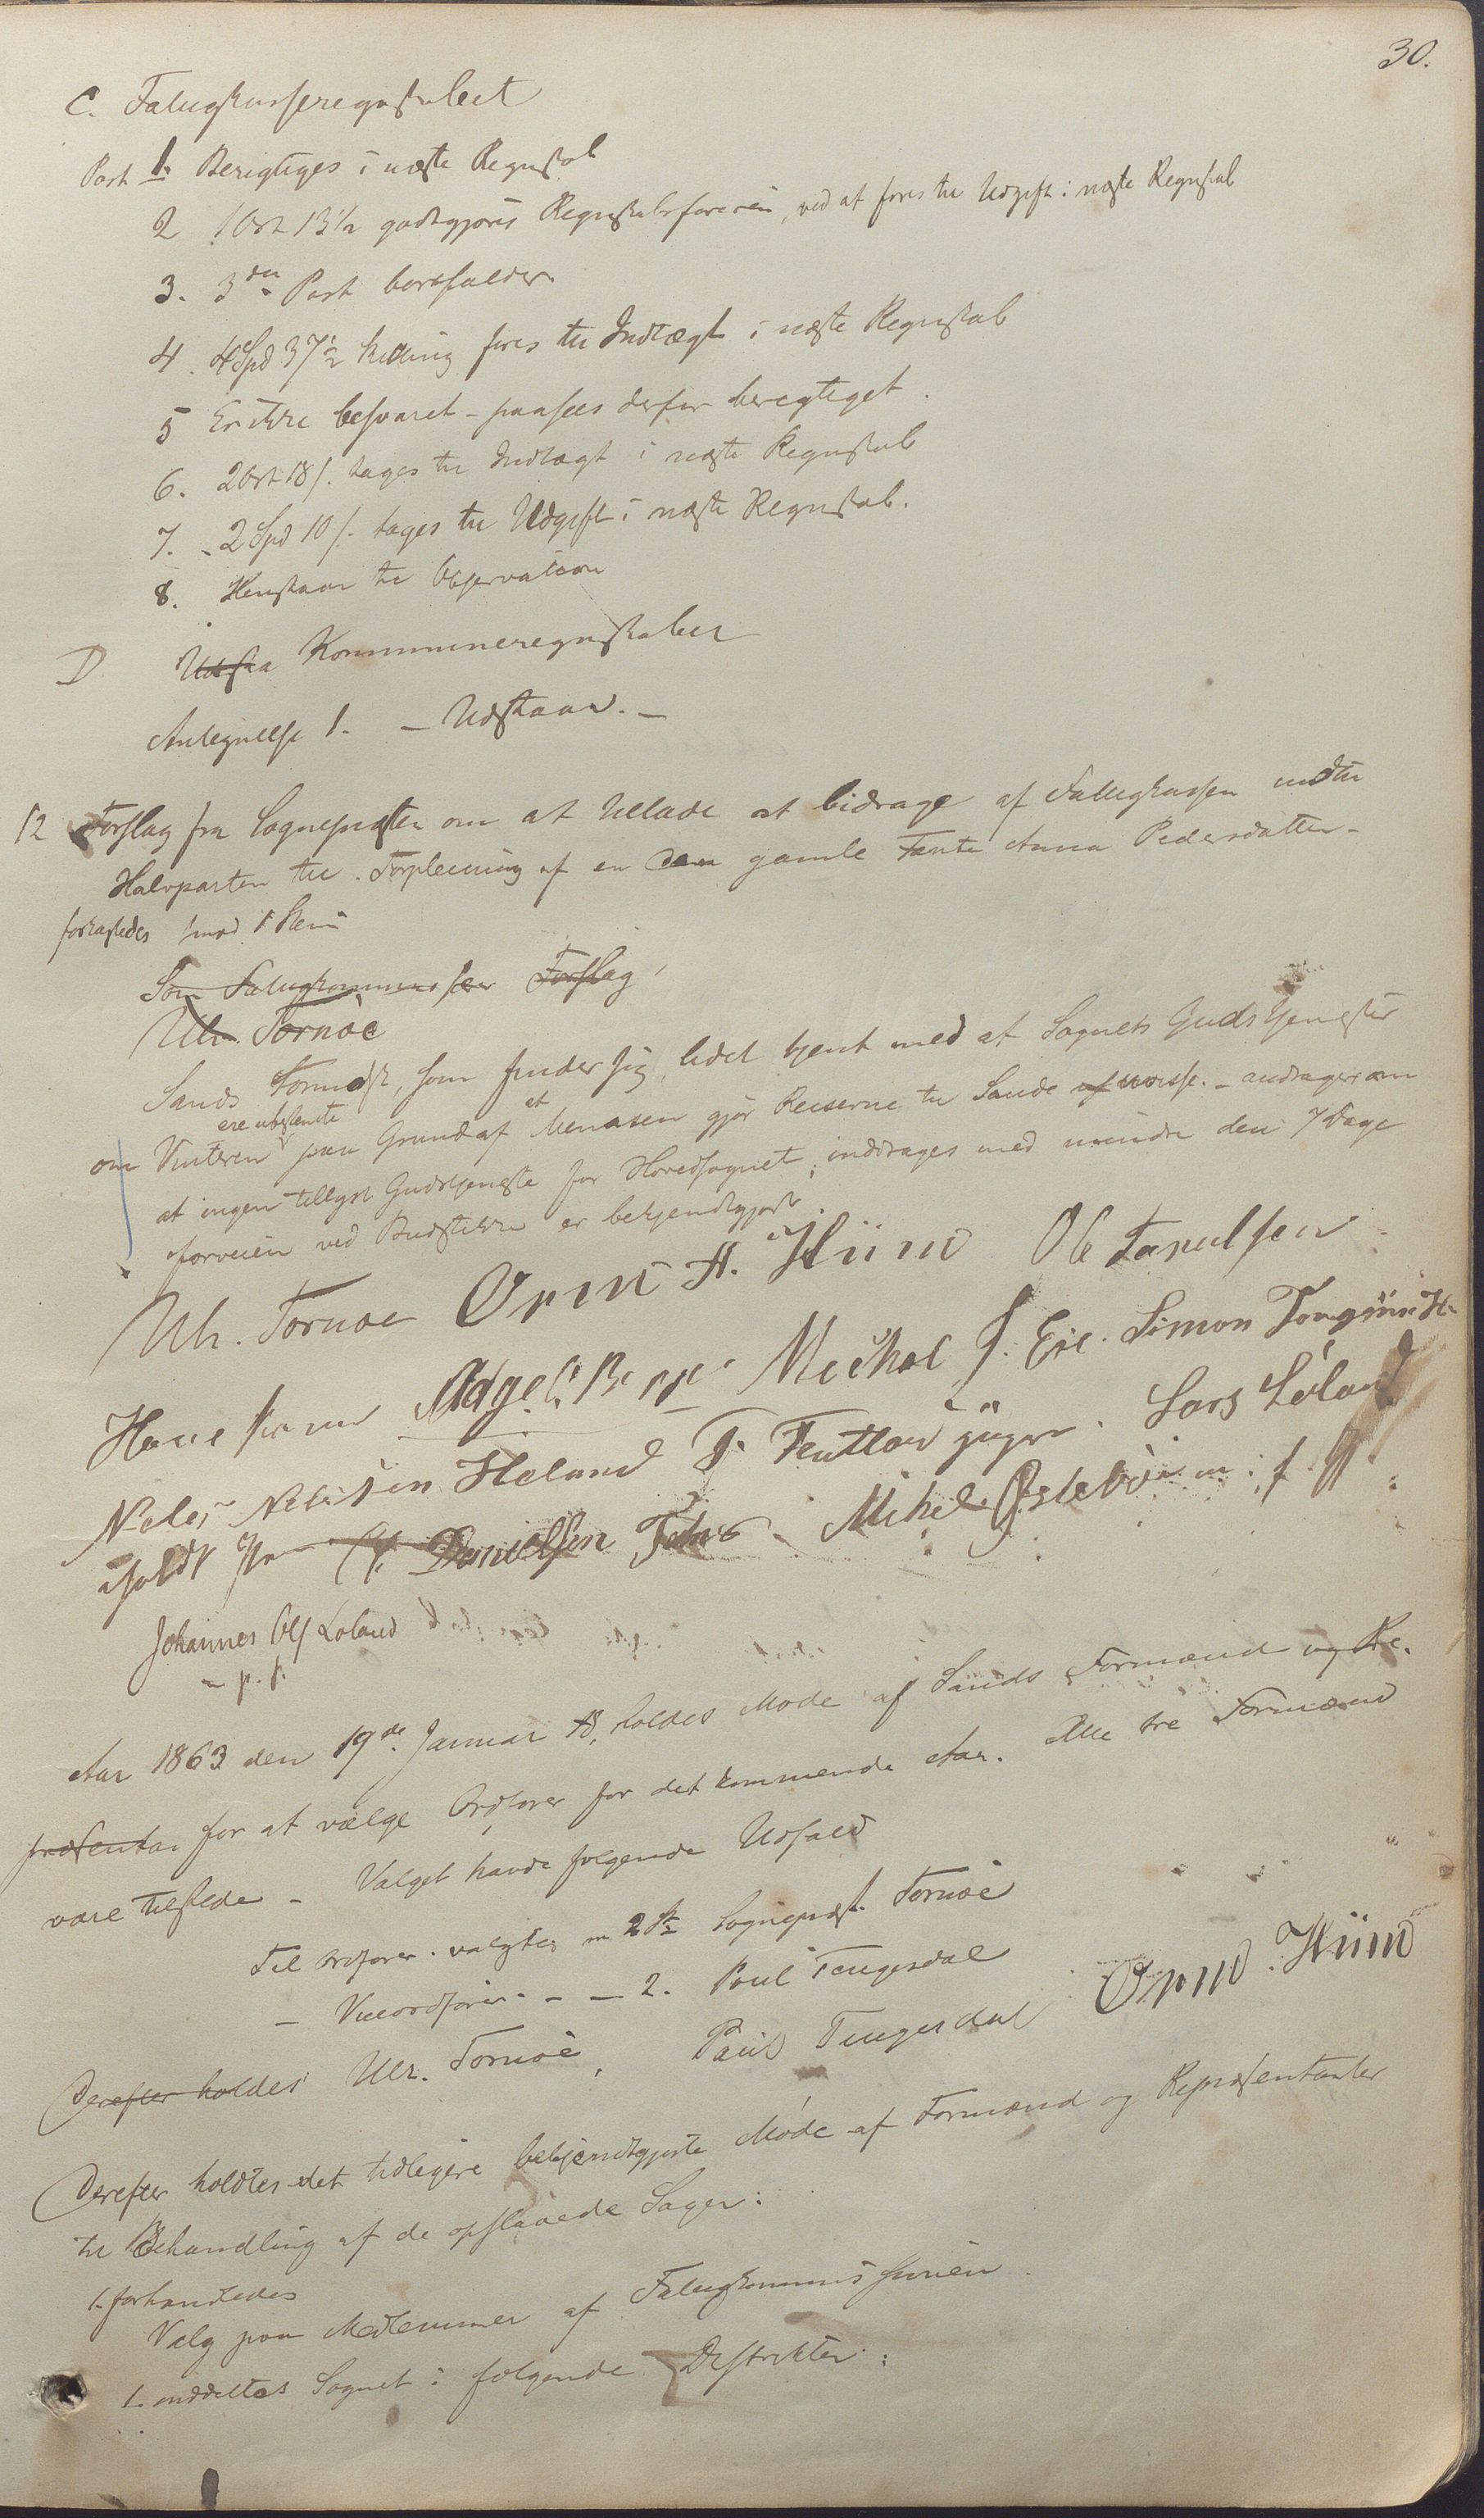 30.
C. Fatigkasseregnskabet
Post 1. Berigtiges i næste Regnskab
2 1 Ort 13½ godtgjøres Regnskabsføreren, ved at føres til Udgift i næste Regnskab
3. 3die Post bortfalder
4. 4 Spd 37½ Skilling føres til Indtægt i næste Regnskab
5 Er ikke besvaret - paasees derfor berigtiget.
6. 2 Ort 18 s. tages til Indtægt i næste Regnskab
7. 2 Spd 10 s. tages til Udgift i næste Regnskab.
8. Henstaar til Observation
D Udsta Kommuneregnskabet
Antegnelse 1. - Udstaar. -
12 Forslag fra Sognepræsten om at tillade at bidrage af Fatigkassen indtil
Halvparten til Forpleining af en gamle Tante Anna Pedersdatter -
forkastedes mod 1 Stem
Som Fatigkommissær Forslag
Ulr. Tornøe
Sands Formdsk, som finder sig lidet tjent med at Sognets Gudstjenester
om Vinteren ere ubestemte paa Grund af at Menasen gjør Reiserne til Sande - andrager om
at ingen tillyst Gudstjeneste for Hovedsognet inddrages med mindre den 7 Dage
forveien ved Budstikke er bekjendtgjort.
Ulr. Tornøe Orm A. Hiim Ole Tarulsen
Michel J. Eie. Simon
Neles Nelsen Heland Lars Løland
Danielsen Mikel Østebø m. f. P.
Johannes Ols Løland
m. p. P.
Aar 1863 den 19de Januar holdes Møde af Sands Formænd og Re-
præsentan for at vælge Ordfører for det kommende Aar. Alle tre Formænd
vare tilstede - Valget havde følgende Udfald
Til Ordfører valgtes m. 2 St. Sognepræst Tornøe
- Viceordfører - - 2. Poul Tengesdal
Derefter holdes Ulr. Tornøe, Paul Tengesdal Orm Hiim
Derefter holdtes det tidligere bekjendtgjorte Møde af Formænd og Repræsentanter
til Behandling af de opslaaede Sager:
1. forhandledes
Valg paa Medlemmer af Fatigkommissionen
1. inddeltes Sognet i følgende Distrikter: